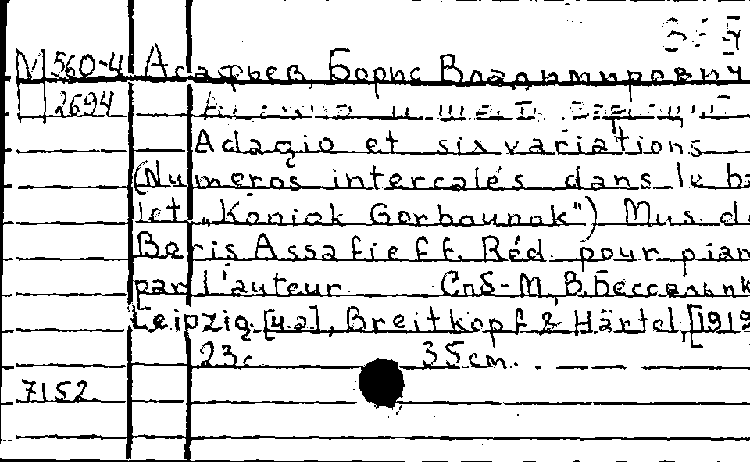 М 560-4 Асафьев, Борис Владимирович
2694
Adagio et six variations
(Numeros intercalés dans le ba
let „Koniok Gorbounok") Mus. d
Boris Assafieff. Réd. pour pian
par l'auteur СПб-М, В. Бессель и к
Leipzig [u.a], Breitkopf & Härtel, [191
23с. 35cm.
7152